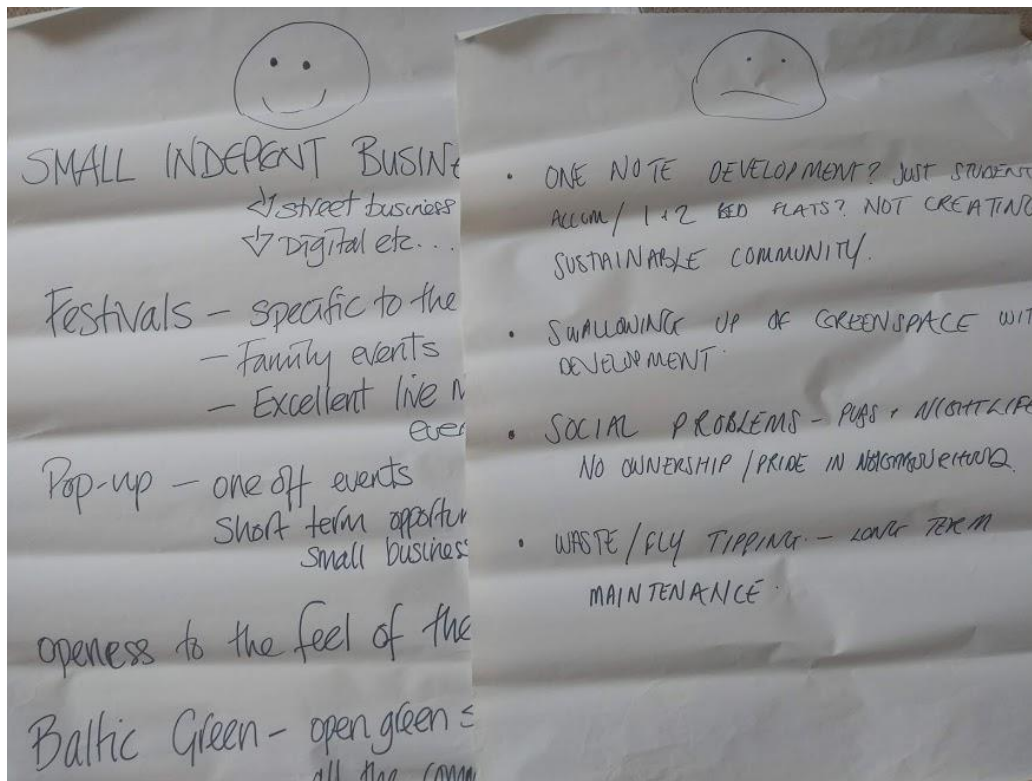 SMALL INDEPENT BUSINE
street business
Digital etc...
Festivals - specific to the
- Family events
- Excellent live M
ever
Pop-up - one off events
Short term opportun
Small business
openess to the feel of the
Baltic Green - open green s
all the comm
• ONE NOTE DEVELOPMENT? JUST STUDENT
ACCOM/ 1+2 BED FLATS? NOT CREATING
SUSTAINABLE COMMUNITY.
• SWALLOWING UP OF GREENSPACE WIT
DEVELOPMENT.
• SOCIAL PROBLEMS - PUBS + NIGHTLIFE
NO OWNERSHIP / PRIDE IN NEIGHBOURHOOD.
• WASTE/FLY TIPPING. - LONG TERM
MAINTENANCE.